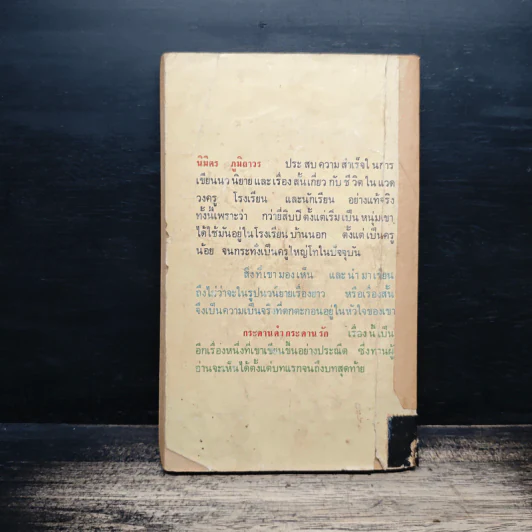 นิมิตร ภูมิถาวร ประสบความสำเร็จในการ
เขียนนวนิยายและเรื่องสั้นเกี่ยวกับชีวิตในแวด
วงครู โรงเรียน และนักเรียน อย่างแท้จริง
ทั้งนี้เพราะว่า กว่ายี่สิบปี ตั้งแต่เริ่มเป็นหนุ่มเขา
ได้ใช้มันอยู่ในโรงเรียนบ้านนอก ตั้งแต่เป็นครู
น้อย จนกระทั่งเป็นครูใหญ่โทในปัจจุบัน
สิ่งที่เขามองเห็น และนำมาเขียน
ถึงไม่ว่าจะในรูปนวนิยายเรื่องยาว หรือเรื่องสั้น
จึงเป็นความเป็นจริงที่ตกตะกอนอยู่ในหัวใจของเขา
กระดานดำกระดานรัก เรื่องนี้เป็น
อีกเรื่องหนึ่งที่เขาเขียนขึ้นอย่างประณีต ซึ่งท่านผู้
อ่านจะเห็นได้ตั้งแต่บทแรกจนถึงบทสุดท้าย